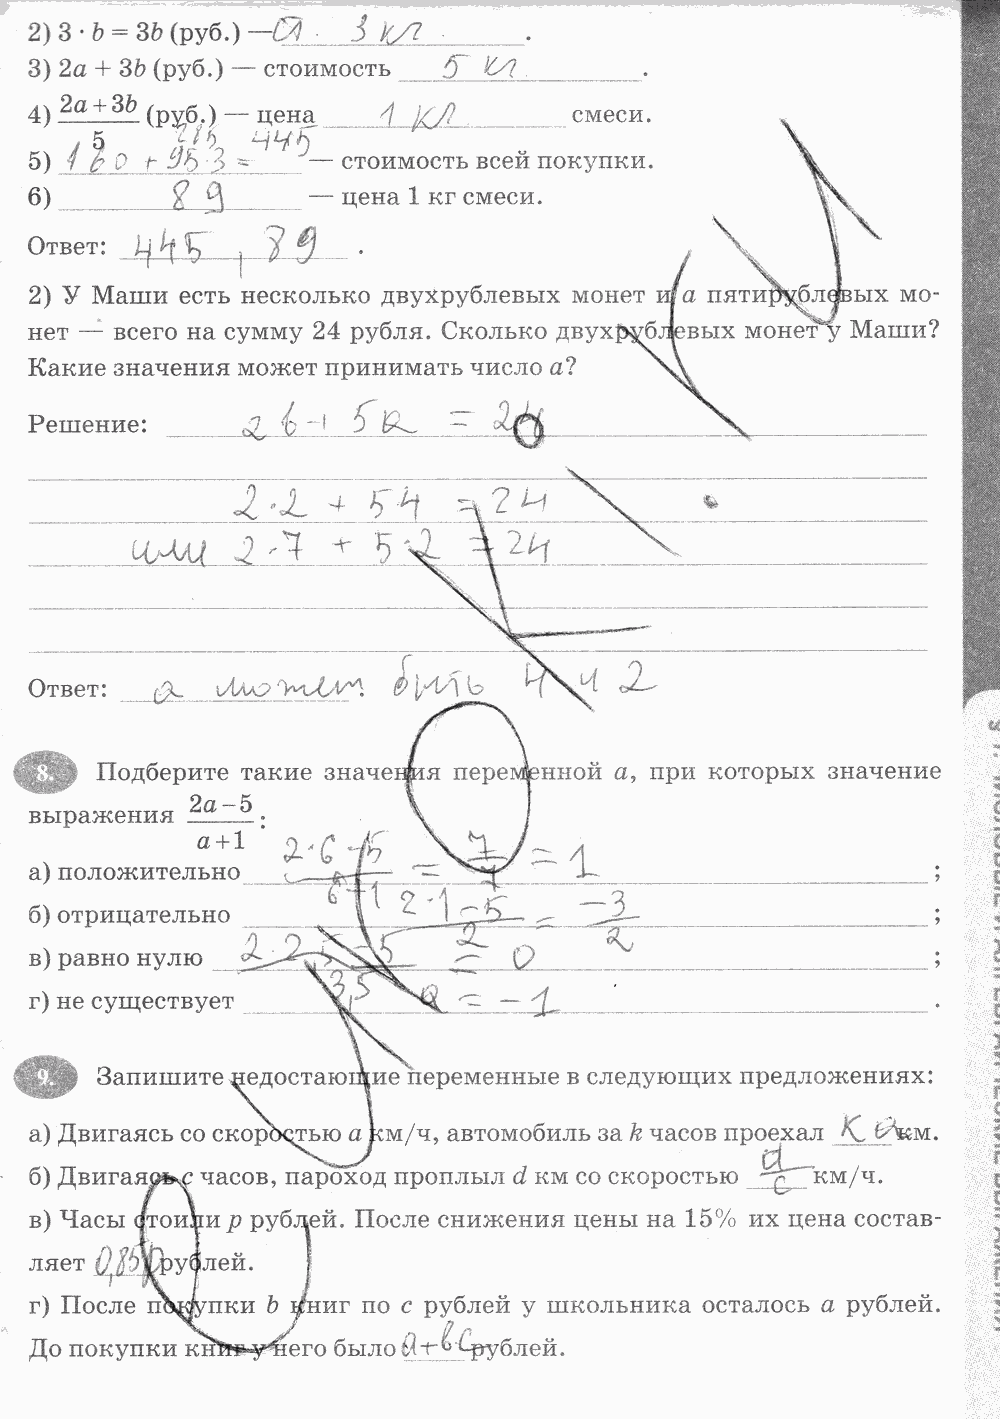 2) 3 · b = 3b (руб.) — ст. 3 кг .
3) 2a + 3b (руб.) — стоимость 5 кг .
4) (2a + 3b)/5 (руб.) — цена 1 кг смеси.
285
5) 160 + 95·3 = 445 — стоимость всей покупки.
6) 89 — цена 1 кг смеси.
Ответ: 445, 89 .
2) У Маши есть несколько двухрублевых монет и a пятирублевых мо-
нет — всего на сумму 24 рубля. Сколько двухрублевых монет у Маши?
Какие значения может принимать число a?
Решение: 2b + 5a = 24
2·2 + 5·4 = 24
или 2·7 + 5·2 = 24
Ответ: a может быть 4 и 2 .
8. Подберите такие значения переменной a, при которых значение
выражения (2a – 5)/(a + 1) :
а) положительно (2·6–5)/(6+1) = 7/7 = 1 ;
б) отрицательно (2·1–5)/2 = –3/2 ;
в) равно нулю (2·2,5–5)/3,5 = 0 ;
г) не существует a = –1 .
9. Запишите недостающие переменные в следующих предложениях:
а) Двигаясь со скоростью a км/ч, автомобиль за k часов проехал ka км.
б) Двигаясь c часов, пароход проплыл d км со скоростью d/c км/ч.
в) Часы стоили p рублей. После снижения цены на 15% их цена состав-
ляет 0,85p рублей.
г) После покупки b книг по c рублей у школьника осталось a рублей.
До покупки книг у него было a+bc рублей.